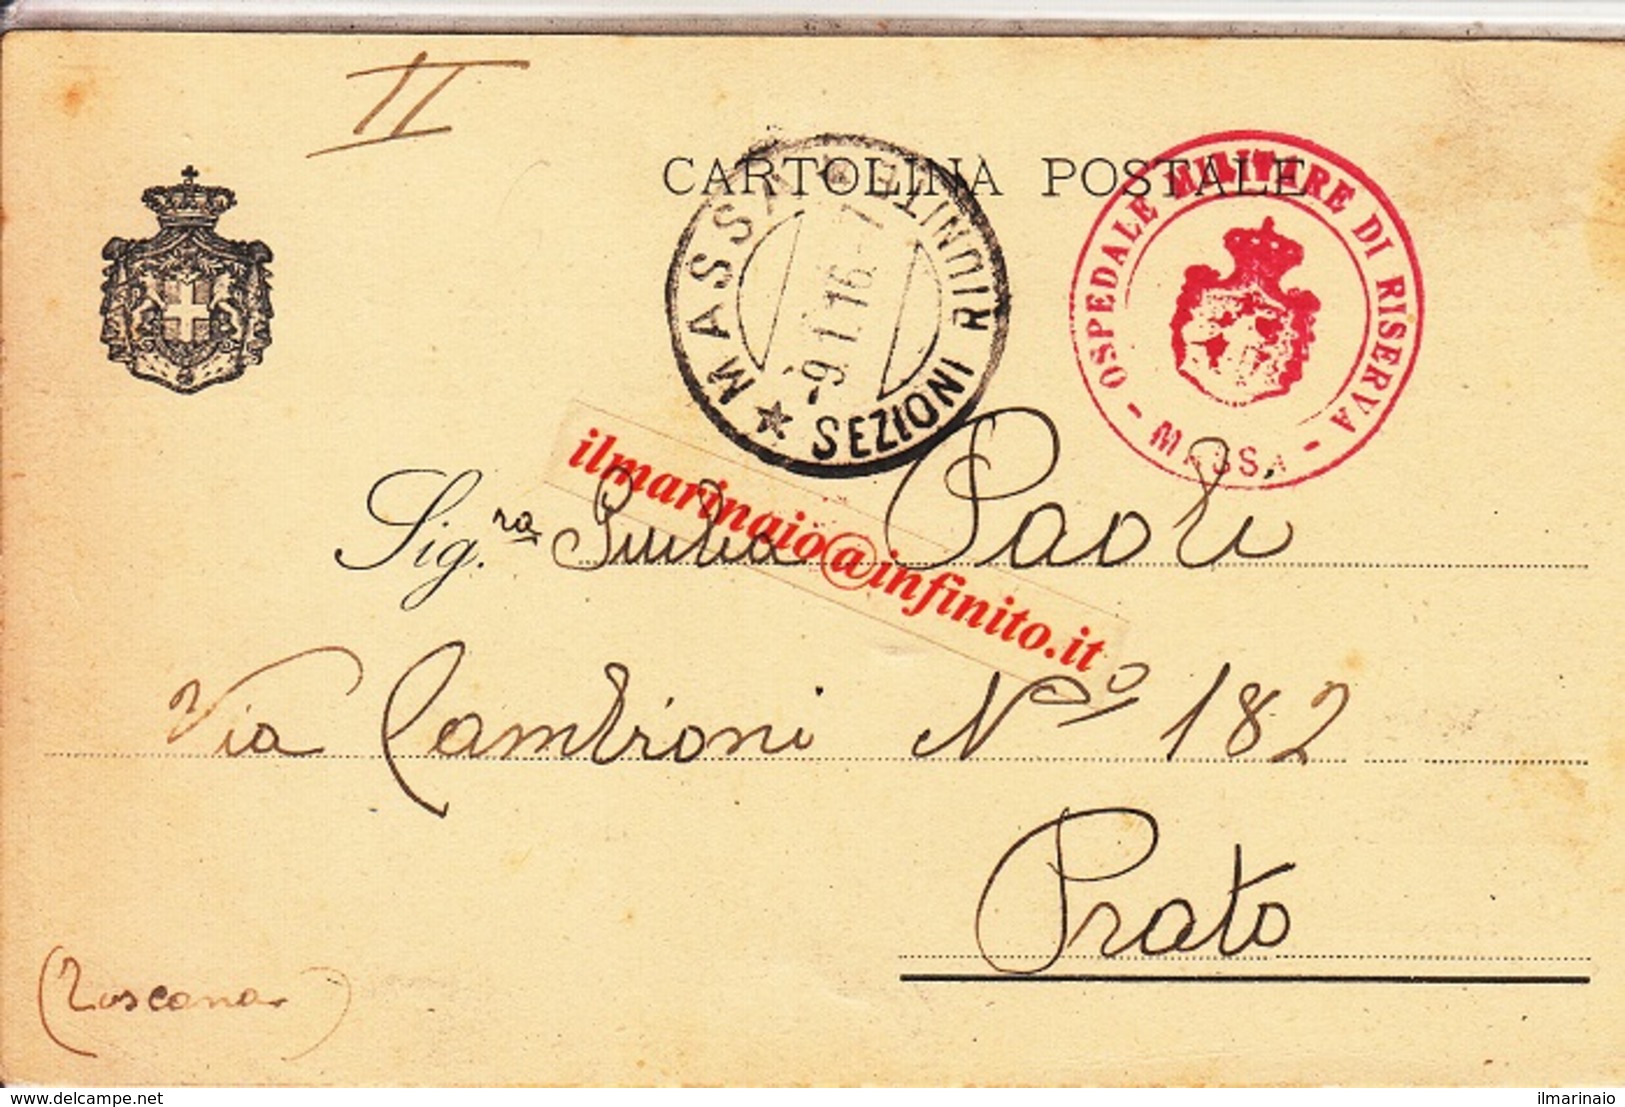 II
CARTOLINA POSTALE
MASSA * SEZIONI RIUNITE
-9.1.16-7
OSPEDALE MILITARE DI RISERVA
- MASSA -
ilmarinaio@infinito.it
Sig.ra Giulia Paoli
Via Cambioni Nº 182
Prato
(Toscana)
delcampe.net
ilmarinaio